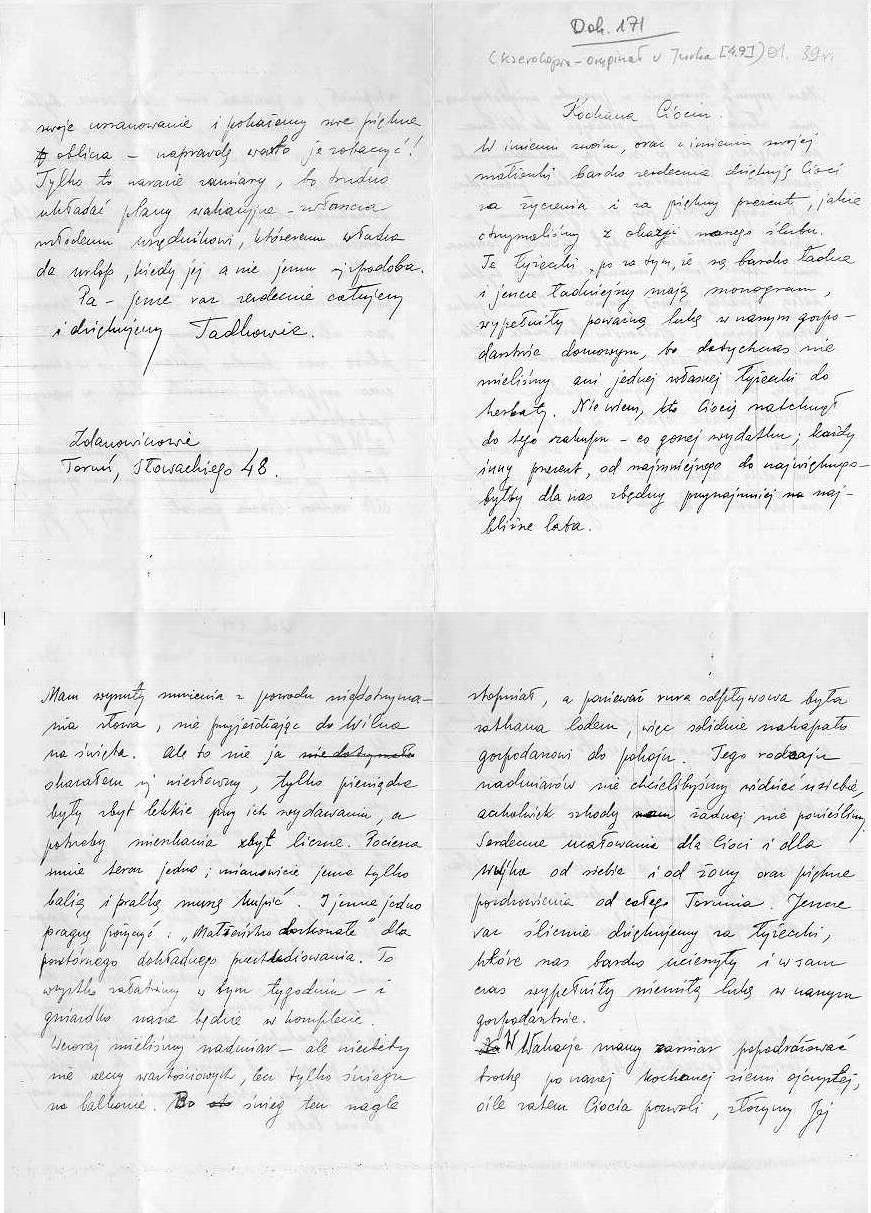 Dok. 171
(kserokopia - oryginał u Jurka [4.9])
Kochana Ciociu.
W imieniu swoim, oraz w imieniu swojej
małżonki bardzo serdecznie dziękuję Cioci
za życzenia i za piękny prezent, jakie
otrzymaliśmy z okazji naszego ślubu.
Te łyżeczki, poza tym, że są bardzo ładne
i jeszcze ładniejszy mają monogram,
wypełniły poważną lukę w naszym gospo-
darstwie domowym, bo dotychczas nie
mieliśmy ani jednej własnej łyżeczki do
herbaty. Nie wiem, kto Ciocię natchnął
do tego zakupu - co gorzej wydatku; każdy
inny prezent, od najmniejszego do największego
byłby dla nas zbędny przynajmniej na naj-
bliższe lata.
Mam wyrzuty sumienia z powodu niedotrzyma-
nia słowa, nie przyjeżdżając do Wilna
na święta. Ale to nie ja nie dotrzymało
okazałem się niesłowny, tylko pieniądze
były zbyt lekkie przy ich wydawaniu, a
potrzeby mieszkania zbyt liczne. Pociesza
mnie teraz jedno; mianowicie jeszcze tylko
balię i pralkę muszę kupić. I jeszcze jedno
pragnę pożyczyć: „Małżeństwo doskonałe" dla
powtórnego dokładnego przestudiowania. To
wszystko załatwimy w tym tygodniu - i
gniazdko nasze będzie w komplecie.
Wczoraj mieliśmy nadmiar - ale niestety
nie rzeczy wartościowych, lecz tylko śniegu
na balkonie. Bo śnieg ten nagle
stopniał, a ponieważ rura odpływowa była
zatkana lodem, więc solidnie nakapało
gospodarzowi do pokoju. Tego rodzaju
nadmiarów nie chcielibyśmy widzieć u siebie,
aczkolwiek szkody nam żadnej nie ponieśliśmy.
Serdeczne ucałowania dla Cioci i dla
Wujka od siebie i od żony oraz piękne
pozdrowienia od całego Torunia. Jeszcze
raz ślicznie dziękujemy za łyżeczki,
które nas bardzo ucieszyły i w sam
czas wypełniły niemiłą lukę w naszym
gospodarstwie.
W Wakacje mamy zamiar popodróżować
trochę po naszej kochanej ziemi ojczystej,
o ile zatem Ciocia pozwoli, złożymy Jej
swoje uszanowanie i pokażemy swe piękne
oblicza - naprawdę warto je zobaczyć!
Tylko to narazie zamiary, bo trudno
układać plany wakacyjne - zwłaszcza
młodemu urzędnikowi, któremu władza
da urlop, kiedy jej a nie jemu się podoba.
Pa - jeszcze raz serdecznie całujemy
i dziękujemy Tadkowie.
Zdanowiczowie
Toruń, Słowackiego 48.